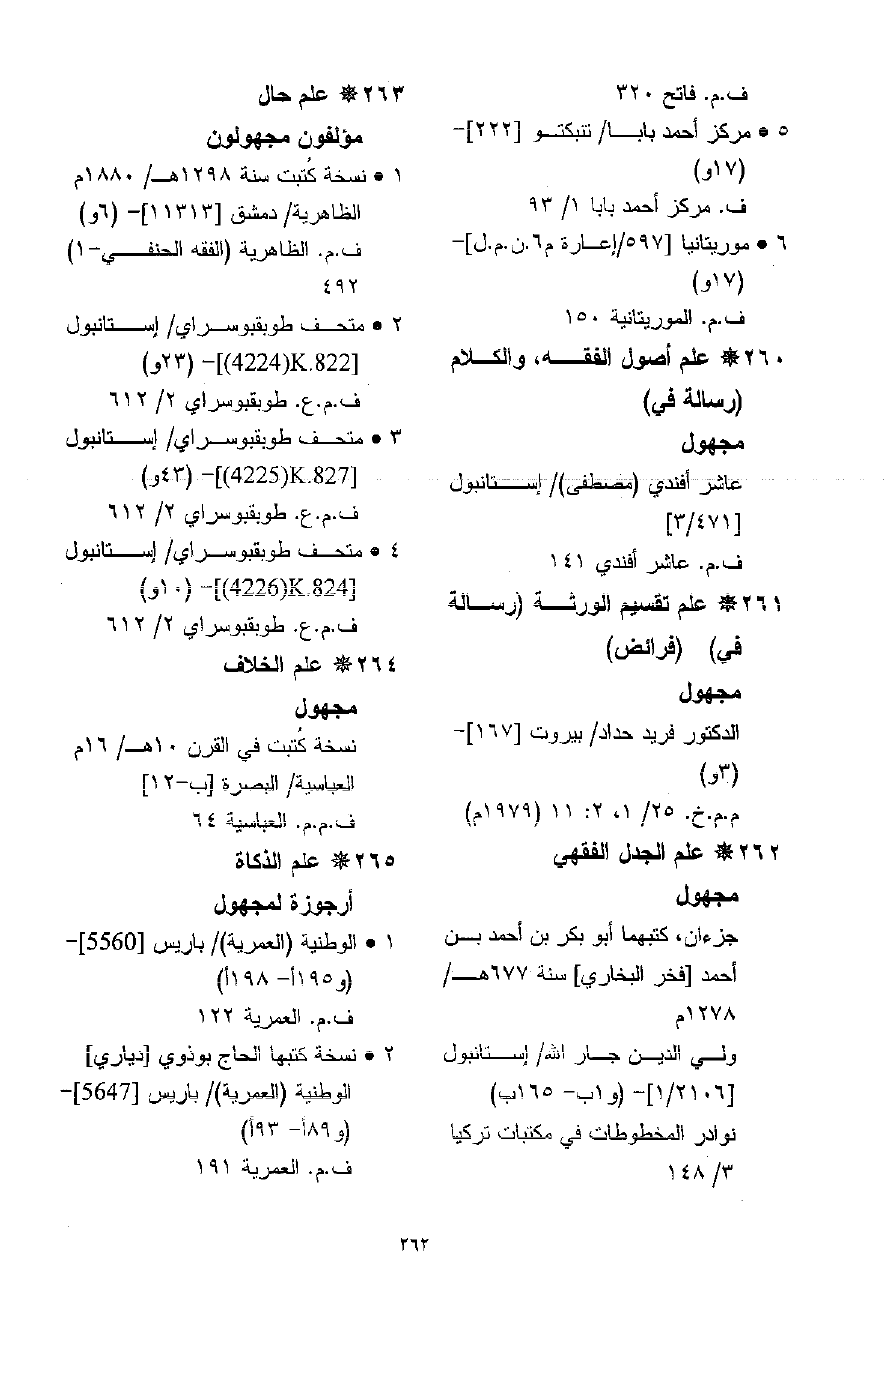 ف.م. فاتح ٣٢٠
٥ • مركز أحمد بابا/ تنبكتو [٢٢٢]-
(١٧و)
ف. مركز أحمد بابا ١/ ٩٣
٦ • موريتانيا [٥٩٧/إعارة م٦.ن.م.ل]-
(١٧و)
ف.م. الموريتانية ١٥٠
٢٦٠ ❋ علم أصول الفقه، والكلام
(رسالة في)
مجهول
عاشر أفندي (مصطفى)/ إستانبول
[٣/٤٧١]
ف.م. عاشر أفندي ١٤١
٢٦١ ❋ علم تقسيم الورثة (رسالة
في) (فرائض)
مجهول
الدكتور فريد حداد/ بيروت [١٦٧]-
(٣و)
م.م.خ. ٢٥/ ١، ٢: ١١ (١٩٧٩م)
٢٦٢ ❋ علم الجدل الفقهي
مجهول
جزءان، كتبهما أبو بكر بن أحمد بن
أحمد [فخر البخاري] سنة ٦٧٧هـ/
١٢٧٨م
ولي الدين جار الله/ إستانبول
[١/٢١٠٦]- (و١ب- ١٦٥ب)
نوادر المخطوطات في مكتبات تركيا
٣/ ١٤٨
٢٦٣ ❋ علم حال
مؤلفون مجهولون
١ • نسخة كُتبت سنة ١٢٩٨هـ/ ١٨٨٠م
الظاهرية/ دمشق [١١٣١٣]- (٦و)
ف.م. الظاهرية (الفقه الحنفي-١)
٤٩٢
٢ • متحف طوبقبوسراي/ إستانبول
[4224)K.822)]- (٢٣و)
ف.م.ع. طوبقبوسراي ٢/ ٦١٢
٣ • متحف طوبقبوسراي/ إستانبول
[4225)K.827)]- (٤٣و)
ف.م.ع. طوبقبوسراي ٢/ ٦١٢
٤ • متحف طوبقبوسراي/ إستانبول
[4226)K.824)]- (١٠و)
ف.م.ع. طوبقبوسراي ٢/ ٦١٢
٢٦٤ ❋ علم الخلاف
مجهول
نسخة كُتبت في القرن ١٠هـ/ ١٦م
العباسية/ البصرة [ب-١٢]
ف.م.م. العباسية ٦٤
٢٦٥ ❋ علم الذكاة
أرجوزة لمجهول
١ • الوطنية (العمرية)/ باريس [5560]-
(و١٩٥أ- ١٩٨أ)
ف.م. العمرية ١٢٢
٢ • نسخة كتبها الحاج بوذوي [دياري]
الوطنية (العمرية)/ باريس [5647]-
(و٨٩أ- ٩٣أ)
ف.م. العمرية ١٩١
٢٦٢